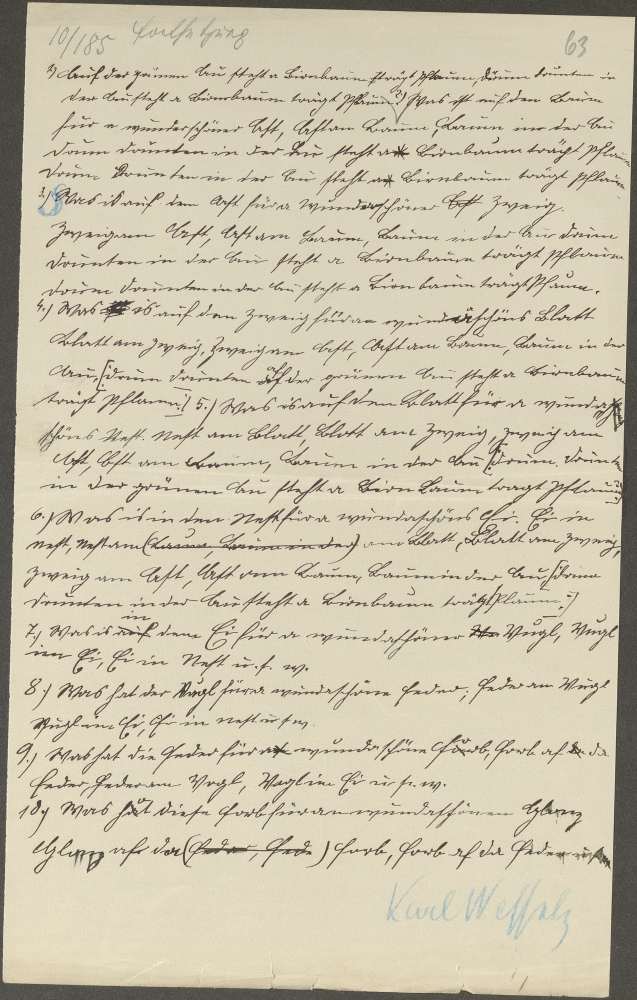 10/185 Fortsetzung 63
1.) Auf der grünen Au steht a Birnbaum trägt Pflaum, drum drunten in
der Au steht a Birnbaum trägt Pflaum 2) Was ist auf den Baum
für a wunderschöner Ast, Ast am Baum, Baum in der Au
drum drunten in der Au steht a Birnbaum trägt Pflaum
drum drunten in der Au steht a Birnbaum trägt Pflaum
3.) Was is auf dem Ast für a wunderschöner Ast Zweig.
Zweig am Ast, Ast am Baum, Baum in der Au drum
drunten in der Au steht a Birnbaum trägt Pflaum
drum drunten in der Au steht a Birnbaum trägt Pflaum.
4.) Was is auf den Zweig für a wundaschöns Blatt
Blatt am Zweig, Zweig am Ast, Ast am Baum, Baum in der
Au, [: drum drunten auf der grünen Au steht a Birnbaum
trägt Pflaum :] 5.) Was is auf dem Blatt für a wunda
schöns Nest. Nest am Blatt, Blatt am Zweig, Zweig am
Ast, Ast am Baum, Baum in der Au [: drum drunten
in der grünen Au steht a Birnbaum tragt Pflaum :]
6.) Was is in den Nest für a wundaschöns Ei. Ei in
Nest, Nest am (Baum, Baum in der) am Blatt, Blatt am Zweig,
Zweig am Ast, Ast am Baum, Baum in der Au [: drum
drunten in der Au steht a Birnbaum trägt Pflaum. :]
7.) Was is auf in dem Ei für a wundaschöner Vogl, Vogl
im Ei, Ei in Nest u. s. w.
8.) Was hat der Vogl für a wundaschöne Feder; Feder am Vogl
Vogl im Ei, Ei in Nest u s w.
9.) Was hat die Feder für a wundaschöne Farb, Farb af da
Feder, Feder am Vogl, Vogl im Ei u. s. w.
10.) Was hat diese Farb für an wundaschönen Glanz
Glanz af da (Feder, Fede) Farb, Farb af da Feder u s w
Karl Wessely